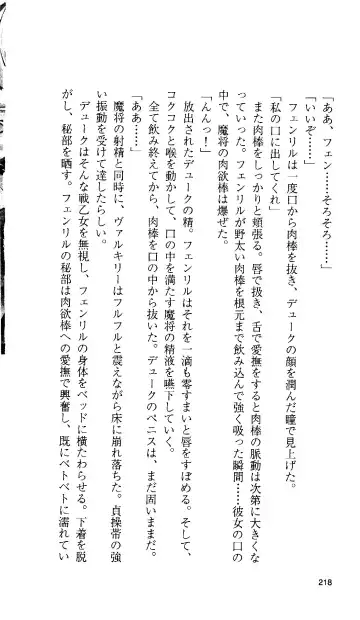 「ああ、フェン……そろそろ……」
「いいぞ……」
　フェンリルは一度口から肉棒を抜き、デュークの顔を潤んだ瞳で見上げた。
「私の口に出してくれ」
　また肉棒をしっかりと頬張る。唇で扱き、舌で愛撫をすると肉棒の脈動は次第に大きくな
っていった。フェンリルが野太い肉棒を根元まで飲み込んで強く吸った瞬間……彼女の口の
中で、魔将の肉欲棒は爆ぜた。
「んんっ！」
　放出されたデュークの精。フェンリルはそれを一滴も零すまいと唇をすぼめる。そして、
コクコクと喉を動かして、口の中を満たす魔将の精液を嚥下していく。
　全て飲み終えてから、肉棒を口の中から抜いた。デュークのペニスは、まだ固いままだ。
「ああ……」
　魔将の射精と同時に、ヴァルキリーはフルフルと震えながら床に崩れ落ちた。貞操帯の強
い振動を受けて達したらしい。
　デュークはそんな戦乙女を無視し、フェンリルの身体をベッドに横たわらせる。下着を脱
がし、秘部を晒す。フェンリルの秘部は肉欲棒への愛撫で興奮し、既にベトベトに濡れてい
218